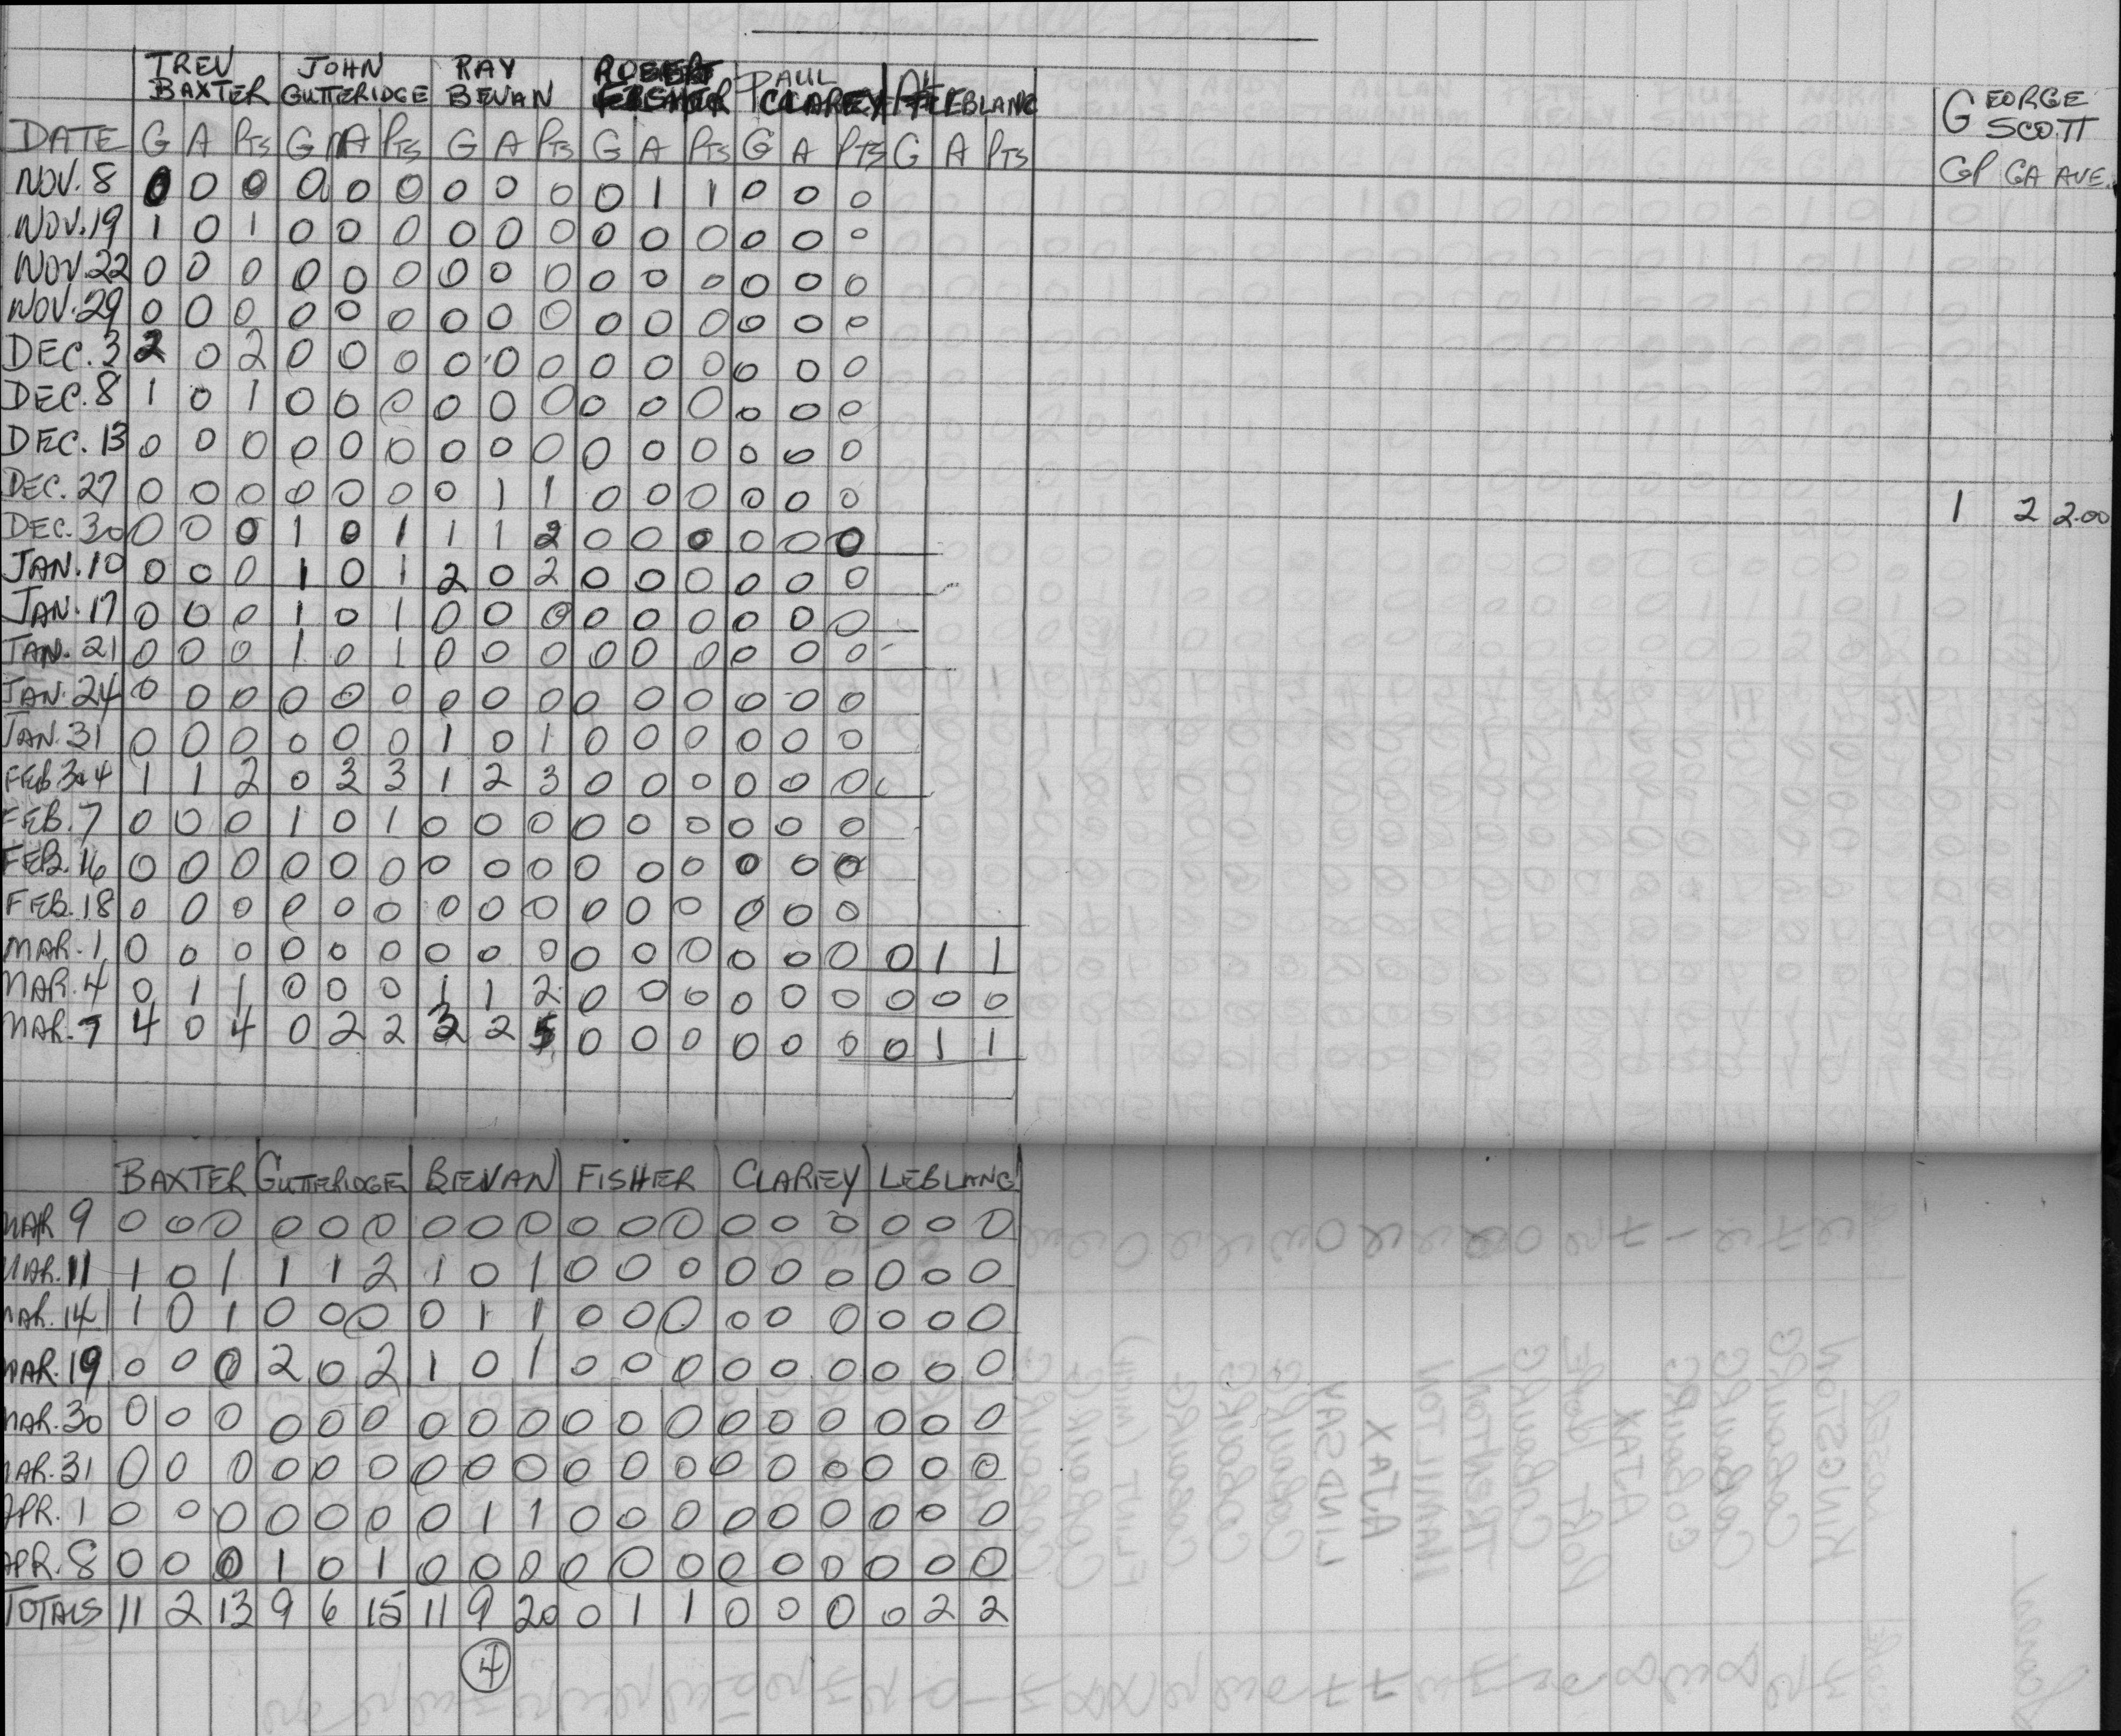 TREV JOHN RAY ROBERT PAUL
BAXTER GUTTERIDGE BEVAN FISHER CLAREY LEBLANC GEORGE SCOTT
DATE G A PTS G A PTS G A PTS G A PTS G A PTS G A PTS GP GA AVE.
NOV. 8 0 0 0 0 0 0 0 0 0 0 1 1 0 0 0
NOV. 19 1 0 1 0 0 0 0 0 0 0 0 0 0 0 0
NOV. 22 0 0 0 0 0 0 0 0 0 0 0 0 0 0 0
NOV. 29 0 0 0 0 0 0 0 0 0 0 0 0 0 0 0
DEC. 3 2 0 2 0 0 0 0 0 0 0 0 0 0 0 0
DEC. 8 1 0 1 0 0 0 0 0 0 0 0 0 0 0 0
DEC. 13 0 0 0 0 0 0 0 0 0 0 0 0 0 0 0
DEC. 27 0 0 0 0 0 0 0 1 1 0 0 0 0 0 0 1 2 2.00
DEC. 30 0 0 0 1 0 1 1 1 2 0 0 0 0 0 0
JAN. 10 0 0 0 1 0 1 2 0 2 0 0 0 0 0 0
JAN. 17 0 0 0 1 0 1 0 0 0 0 0 0 0 0 0
JAN. 21 0 0 0 1 0 1 0 0 0 0 0 0 0 0 0
JAN. 24 0 0 0 0 0 0 0 0 0 0 0 0 0 0 0
JAN. 31 0 0 0 0 0 0 1 0 1 0 0 0 0 0 0
FEB. 3&4 1 1 2 0 3 3 1 2 3 0 0 0 0 0 0
FEB. 7 0 0 0 1 0 1 0 0 0 0 0 0 0 0 0
FEB. 16 0 0 0 0 0 0 0 0 0 0 0 0 0 0 0
FEB. 18 0 0 0 0 0 0 0 0 0 0 0 0 0 0 0
MAR. 1 0 0 0 0 0 0 0 0 0 0 0 0 0 0 0 0 1 1
MAR. 4 0 1 1 0 0 0 1 1 2 0 0 0 0 0 0 0 0 0
MAR. 7 4 0 4 0 2 2 3 2 5 0 0 0 0 0 0 0 1 1
BAXTER GUTTERIDGE BEVAN FISHER CLAREY LEBLANC
MAR 9 0 0 0 0 0 0 0 0 0 0 0 0 0 0 0 0 0 0
MAR. 11 1 0 1 1 1 2 1 0 1 0 0 0 0 0 0 0 0 0
MAR. 14 1 0 1 0 0 0 0 1 1 0 0 0 0 0 0 0 0 0
MAR. 19 0 0 0 2 0 2 1 0 1 0 0 0 0 0 0 0 0 0
MAR. 30 0 0 0 0 0 0 0 0 0 0 0 0 0 0 0 0 0 0
MAR. 31 0 0 0 0 0 0 0 0 0 0 0 0 0 0 0 0 0 0
APR. 1 0 0 0 0 0 0 0 1 1 0 0 0 0 0 0 0 0 0
APR. 8 0 0 0 1 0 1 0 0 0 0 0 0 0 0 0 0 0 0
TOTALS 11 2 13 9 6 15 11 9 20 0 1 1 0 0 0 0 2 2
4